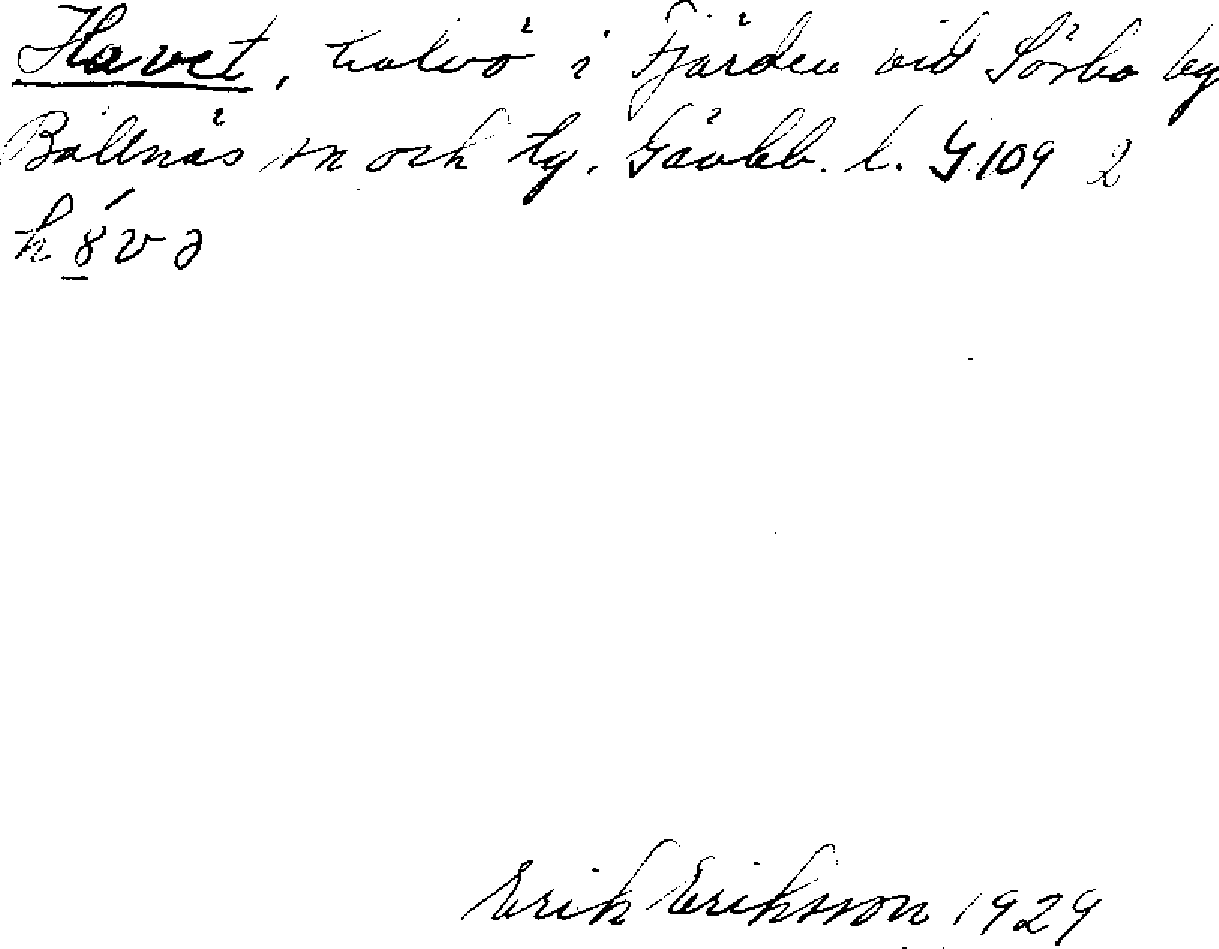 Havet, halvö i Fjärden vid Sörbo by
Bollnäs sn och tg. Gävleb. l. G.109 2
h 8́ v ə
Erik Eriksson 1929